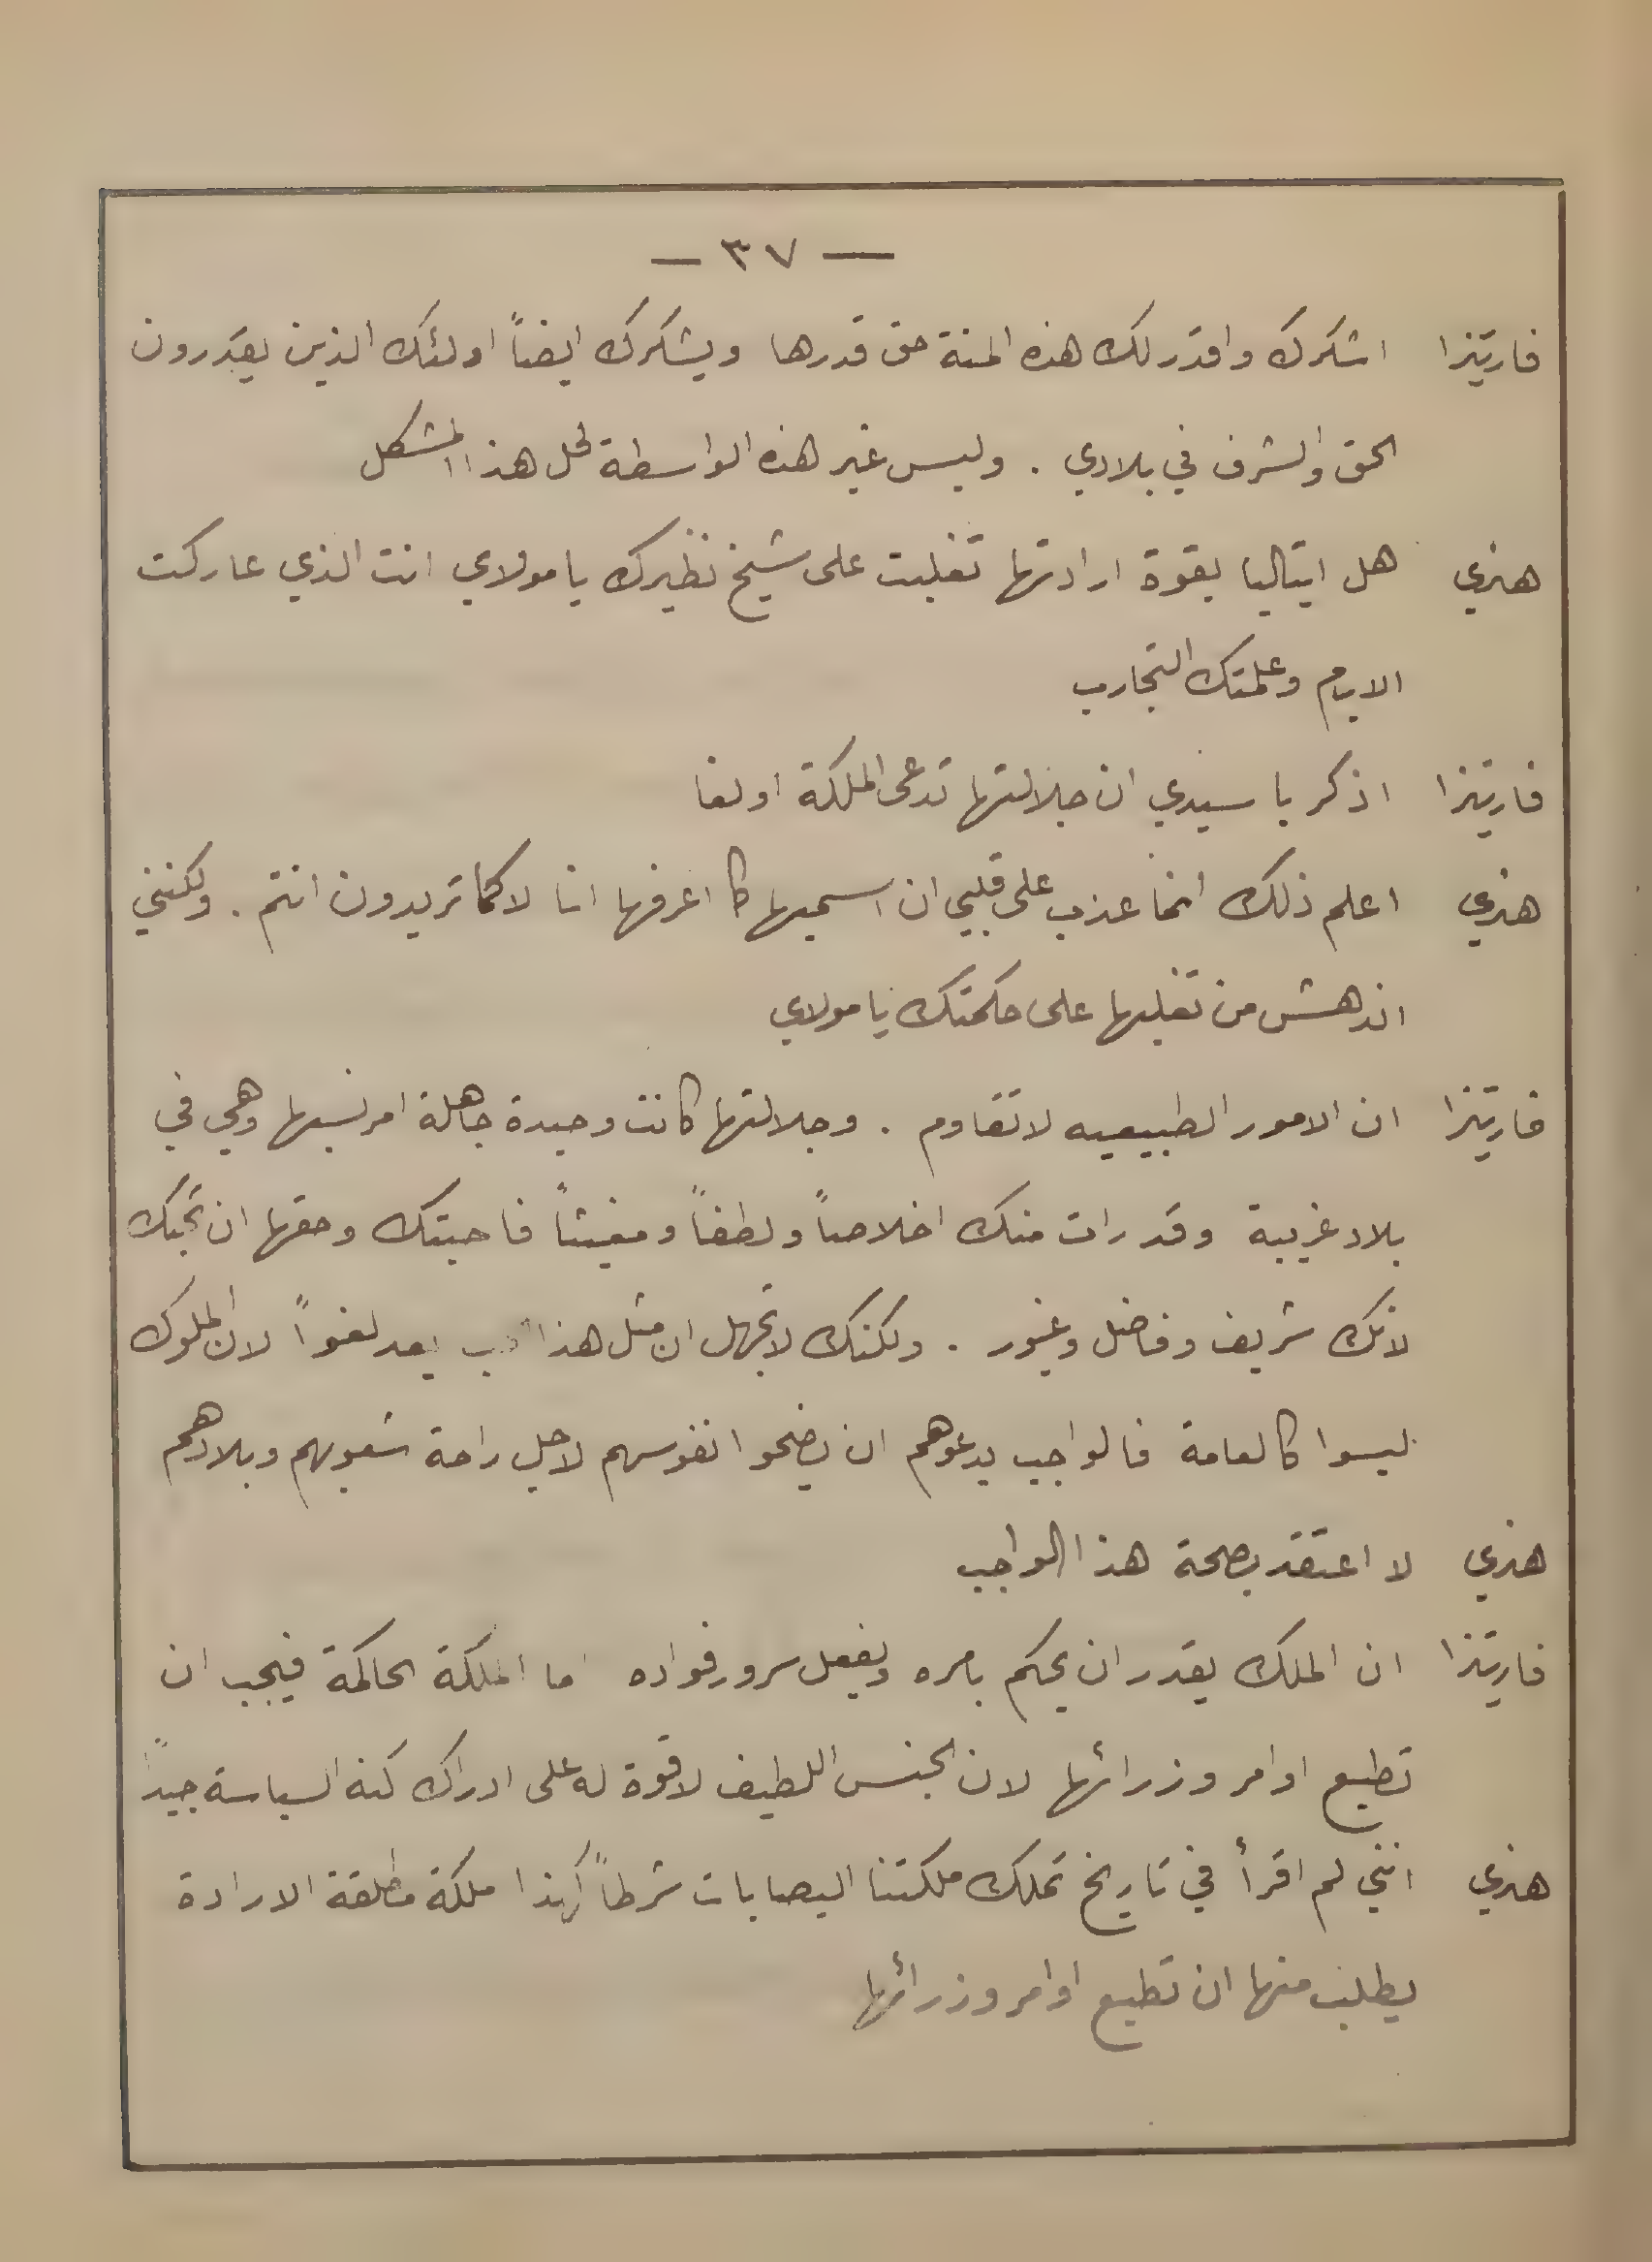 — ٣٧ —
فاريتزا اشكرك واقدر لك هذه المنة حق قدرها ويشكرك ايضاً اولئك الذين يقدرون
الحق والشرف في بلادي . وليس غير هذه الواسطة لحل هذا المشكل
هنري هل ايتاليا بقوة ارادتها تغلبت على شيخ نظيرك يا مولاي انت الذي عاركت
الايام وعلمتك التجارب
فاريتزا اذكر يا سيدي ان جلالتها تدعى الملكة اولغا
هنري اعلم ذلك انما عذب على قلبي ان اسميها كما اعرفها انا لا كما تريدون انتم . ولكنني
اندهش من تغلبها على حكمتك يا مولاي
فاريتزا ان الامور الطبيعيه لا تقاوم . وجلالتها كانت وحيدة جاهلة امر نسبها وهي في
بلاد غريبة وقد رات منك اخلاصاً ولطفاً ومغيثاً فاحبتك وحقها ان تحبك
لانك شريف وفاضل وغيور . ولكنك لا تجهل ان مثل هذا يعد لغواً لان الملوك
ليسوا كالعامة فالواجب يدعوهم ان يضحوا انفوسهم لاجل راحة شعوبهم وبلادهم
هنري لا اعتقد بصحة هذا الواجب
فاريتزا ان الملك يقدر ان يحكم بامره ويفعل سرور فواده اما الملكة الحاكمة فيجب ان
تطيع اوامر وزرائها لان الجنس اللطيف لا قوة له على ادراك كنه السياسة جيداً
هنري انني لم اقرأ في تاريخ تملك ملكتنا اليصابات شرطاً كهذا ملكة مطلقة الارادة
يطلب منها ان تطيع اوامر وزرائها